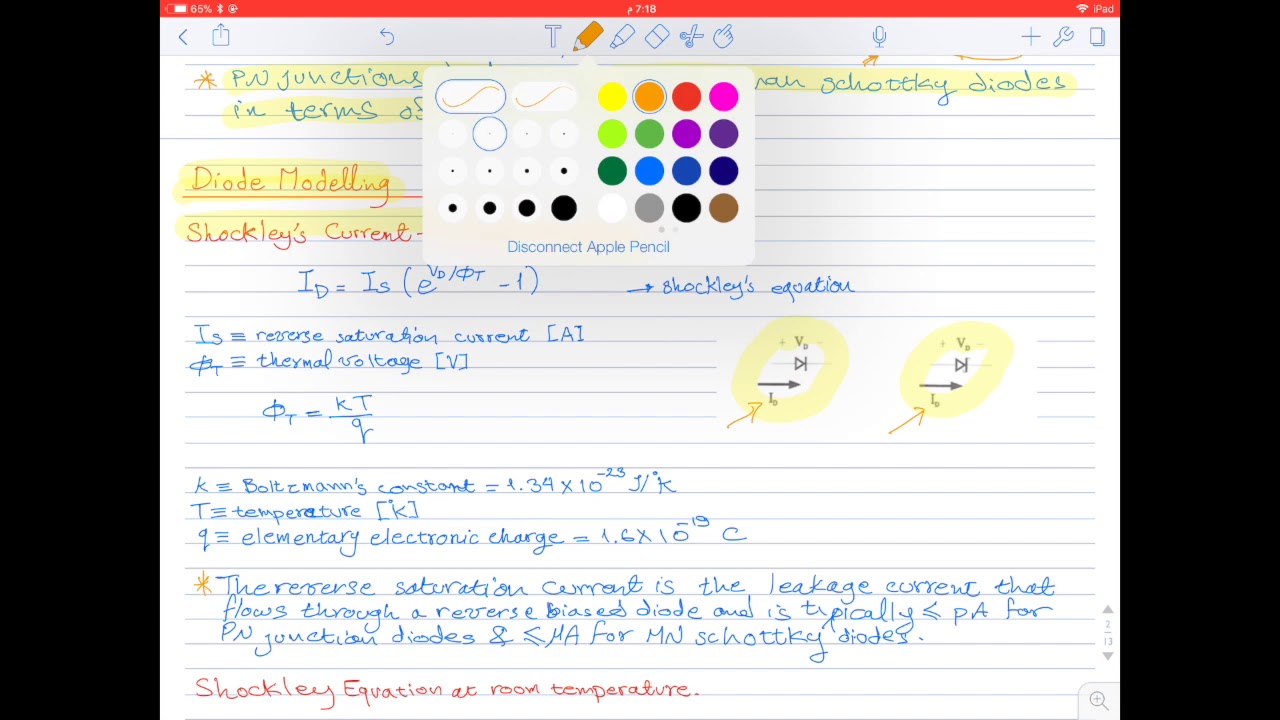 65% 7:18 م iPad
* PN junctions an schottky diodes
in terms of
Diode Modelling
Shockley's Current-
Disconnect Apple Pencil
I_D = I_s (e^{V_D/ϕ_T} - 1) → shockley's equation
I_s ≡ reverse saturation current [A]
ϕ_T ≡ thermal voltage [V]
+ V_D − + V_D −
I_D I_D
ϕ_T = kT/q
k ≡ Boltzmann's constant = 1.34 × 10^{-23} J/°k
T ≡ temperature [°k]
q ≡ elementary electronic charge = 1.6 × 10^{-19} C
* The reverse saturation current is the leakage current that
flows through a reverse biased diode and is typically ≤ pA for
PN junction diodes & ≤ μA for MN schottky diodes.
2
13
Shockley Equation at room temperature.